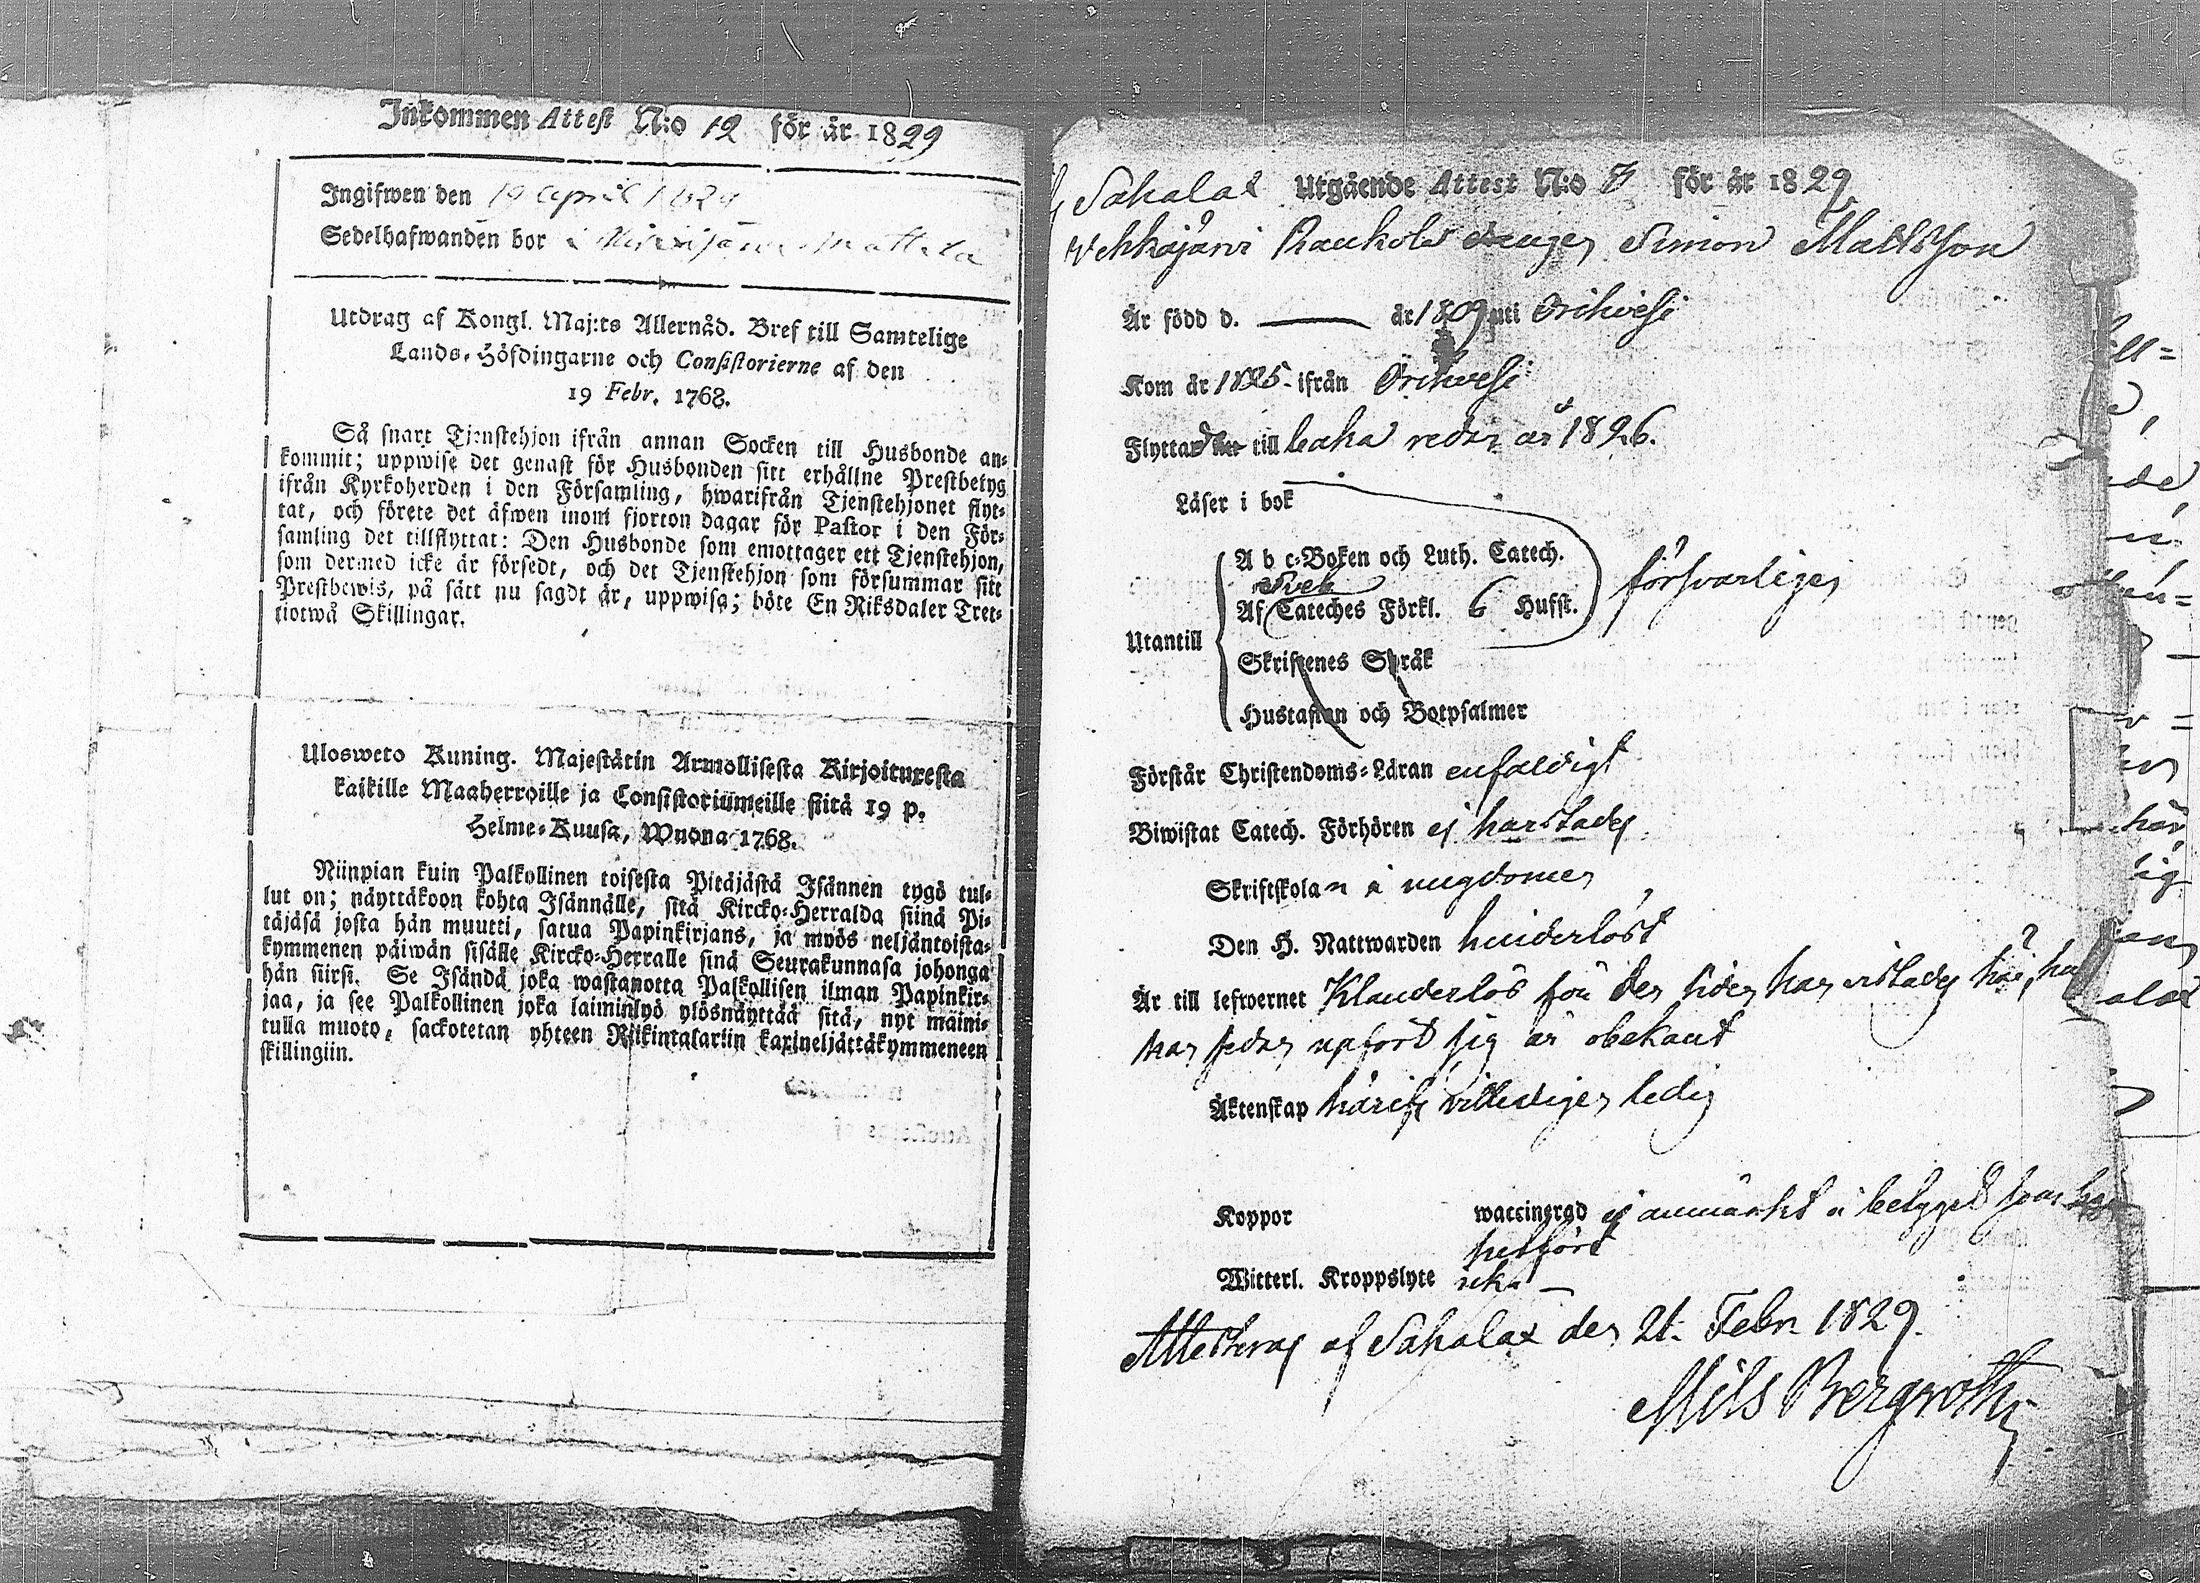 Inkommen Attest N:o 12 för år 1829
Ingifwen den 19 April 1829
Sedelhafwanden bor i Mattila
Utdrag af Kongl. Maj:ts Allernåd. Bref till Samtelige
Lands-Höfdingarne och Consistorierne af den
19 Febr. 1768.
Så snart Tjenstehjon ifrån annan Socken till Husbonde an-
kommit; uppwise det genast för Husbonden sitt erhållne Prestbetyg
ifrån Kyrkoherden i den Församling, hwarifrån Tjenstehjonet flyt-
tat, och förete det äfwen inom fjorton dagar för Pastor i den För-
samling det tillflyttat: Den Husbonde som emottager ett Tjenstehjon,
som dermed icke är försedt, och det Tjenstehjon som försummar sitt
Prestbewis, på sätt nu sagdt är, uppwisa; böte En Riksdaler Tret-
tiotwå Skillingar.
Ulosweto Kuning. Majestätin Armollisesta Kirjoituxesta
kaikille Maaherroille ja Consistoriumeille siitä 19 p.
Helme-Kuusa, Wuona 1768.
Niinpian kuin Palkollinen toisesta Pitäjästä Isännen tygö tul-
lut on; näyttäkoon kohta Isännälle, sitä Kircko-Herralda siinä Pi-
täjäsä josta hän muutti, satua Papinkirjans, ja myös neljäntoista-
kymmenen päiwän sisälle Kircko-Herralle sinä Seurakunnasa johonga
hän siirsi. Se Isändä joka wastanotta Palkollisen ilman Papinkir-
jaa, ja see Palkollinen joka laiminlyö ylösnäyttää sitä, nyt mäini-
tulla muoto, sackotetan yhteen Riikintalariin kaxineljättäkymmeneen
skillingiin.
Sahalax Utgående Attest N:o 8 för år 1829
Wehkajärvi Raukola drengen Simon Mattsson
Är född d. — år 1809 uti Orihvesi
Kom år 1825 ifrån Orihvesi
Flyttade till baka redan år 1826.
Läser i bok
A b c-Boken och Luth. Catech.
Sveb
Af Cateches Förkl. 6 Hufst.
försvarligen
Utantill
Skriftenes Språk
Hustaflan och Botpsalmer
Förstår Christendoms-Läran enfaldigt
Biwistat Catech. Förhören ej härstädes
Skriftskolan i ungdomen
Den H. Nattwarden hinderlöst
Är till lefwernet Klanderlös för den tiden han vistades här, hu
han sedan upfört sig är obekant
Äktenskap härifr. villedigen ledig
Koppor waccinerad ej anmärkt i betyget som han
hitfört
Witterl. Kroppslyte icke —
Attesteras af Sahalax den 21. Febr. 1829.
Nils Bergroth